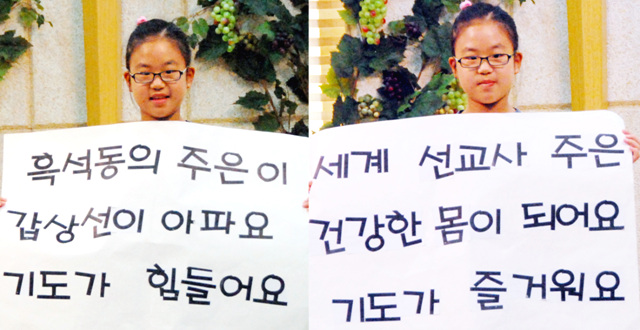 흑석동의 주은이
갑상선이 아파요
기도가 힘들어요
세계 선교사 주은
건강한 몸이 되어요
기도가 즐거워요